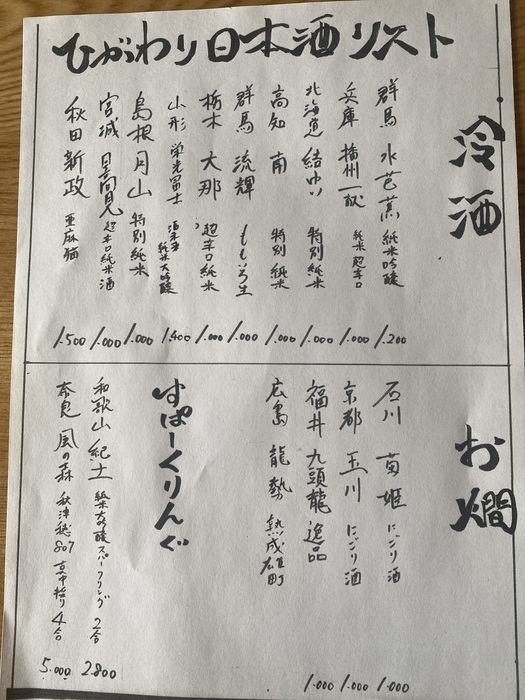 ひがわり日本酒リスト
冷酒
群馬 水芭蕉 純米吟醸 1.200
兵庫 播州一献 純米超辛口 1.000
北海道 結ゆい 特別純米 1.000
高知 南 特別純米 1.000
群馬 流輝 ももいろ生 1.000
栃木 大那 超辛口純米 1.000
山形 栄光冨士 酒未来 純米大吟醸 1.400
島根 月山 特別純米 1.000
宮城 日高見 超辛口純米酒 1.000
秋田 新政 亜麻猫 1.500
お燗
石川 菊姫 にごり酒 1.000
京都 玉川 にごり酒 1.000
福井 九頭龍 逸品 1.000
広島 龍勢 熟成雄町
すぱーくりんぐ
和歌山 紀土 純米大吟醸スパークリング 2合 2.800
奈良 風の森 秋津穂807 真中採り 4合 5.000